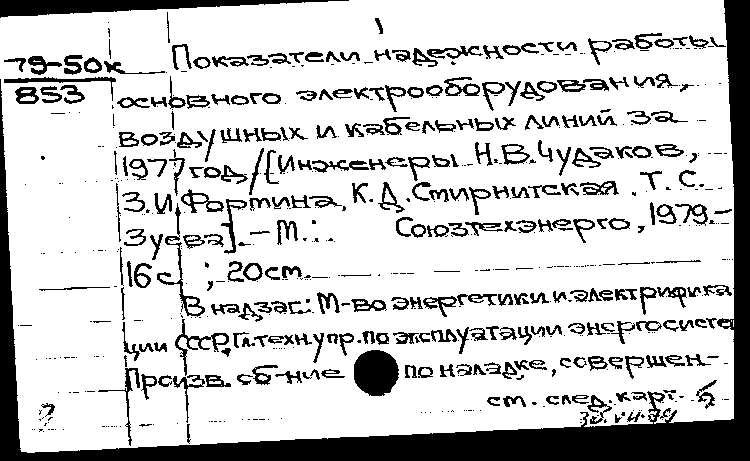 1
79-50к Показатели надежности работы
853 основного электрооборудования,
воздушных и кабельных линий за
1977 год /[Инженеры Н.В.Чудаков,
З.И.Фортина, К.Д.Стирнитская, Т.С.
Зуева]. – М.: Союзтехэнерго, 1979.–
16 с. ; 20 см.
В надзаг.: М-во энергетики и электрифика
ции СССР, Гл.техн.упр.по эксплуатации энергосистем
Произв. об-ние по наладке, совершен-
см. след. карт.